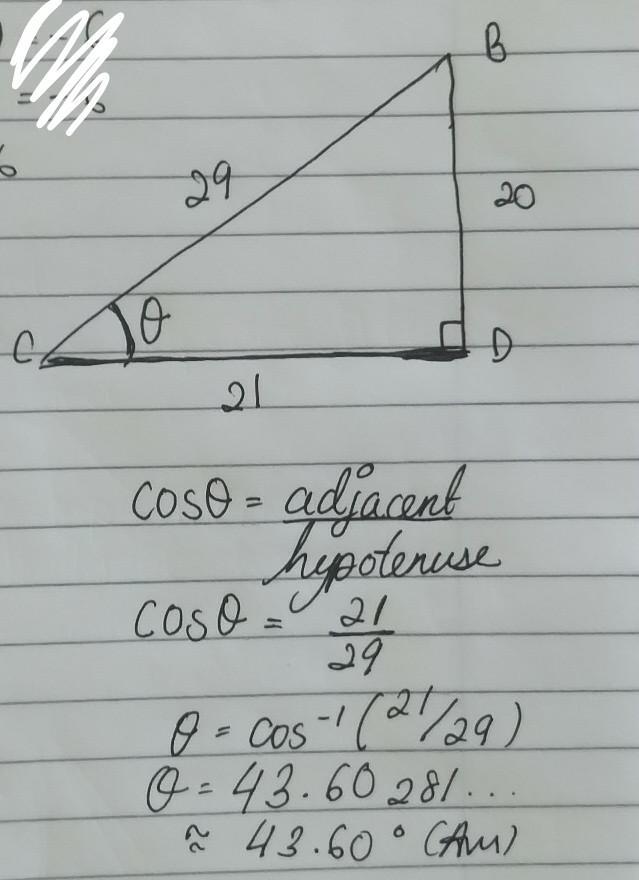 B
29
20
θ
C
D
21
cosθ = adjacent
hypotenuse
cosθ = 21
29
θ = cos⁻¹(21/29)
θ = 43.60281...
≈ 43.60° (Ans)